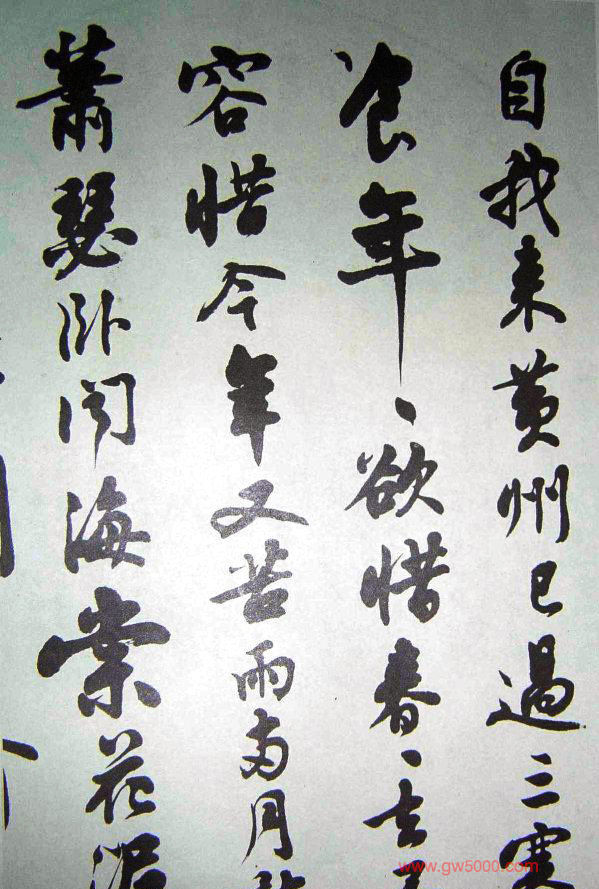 自我来黄州已過三寒
食年々欲惜春々去
容惜今年又苦雨兩月
蕭瑟卧聞海棠花泥
www.gw5000.com